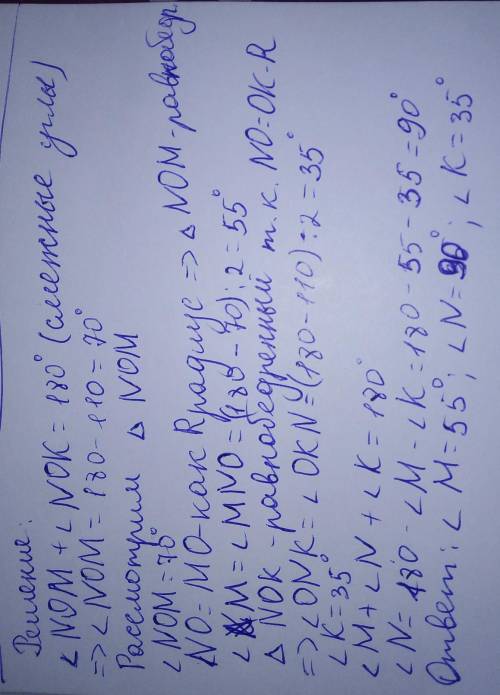 Решение:
∠NOM + ∠NOK = 180° (смежные углы)
=> ∠NOM = 180 - 110 = 70°
Рассмотрим △ NOM
∠NOM = 70°
NO = MO - как R радиус => △ NOM - равнобедр.
∠M = ∠MNO = (180 - 70) : 2 = 55°
△ NOK - равнобедренный т.к. NO = OK - R
=> ∠ONK = ∠OKN = (180 - 110) : 2 = 35°
∠K = 35°
∠M + ∠N + ∠K = 180°
∠N = 180 - ∠M - ∠K = 180 - 55 - 35 = 90°
Ответ: ∠M = 55°; ∠N = 90°; ∠K = 35°